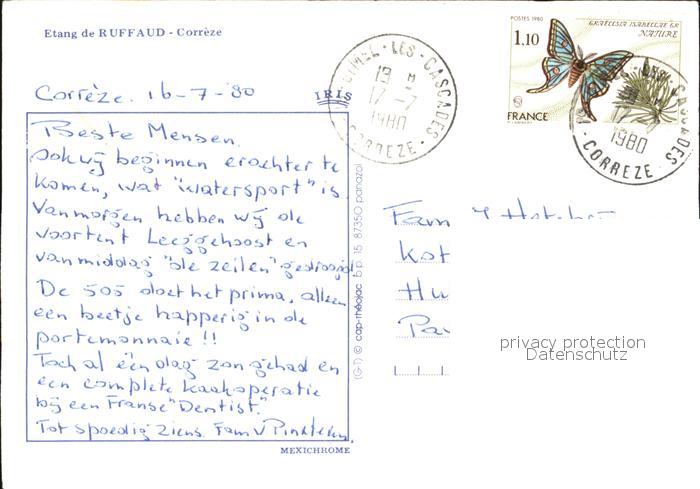 Etang de RUFFAUD - Corrèze
POSTES 1980
GRAËLLSIA ISABELLAE GR.
NATURE
1,10
FRANCE
GIMEL-LES-CASCADES
19 H
17-7
1980
CORREZE
LES CASCADES
1980
CORREZE
Corrèze. 16-7-'80
IRIS
Beste Mensen.
Ook wij beginnen erachter te
komen, wat "watersport" is
Vanmorgen hebben wij de
voortent Leeggehoost en
vanmiddag "de zeilen" gedroogd
De 505 doet het prima, alleen
een beetje happerig in de
portemonnaie !!
Toch al één dag zon gehad en
een complete kaakoperatie
bij een Franse "Dentist".
Tot spoedig ziens. Fam v
MEXICHROME
(G-T) © cap-théojac b.p. 15 87350 panazol
Fam
Kot
Hu
Pa
privacy protection
Datenschutz